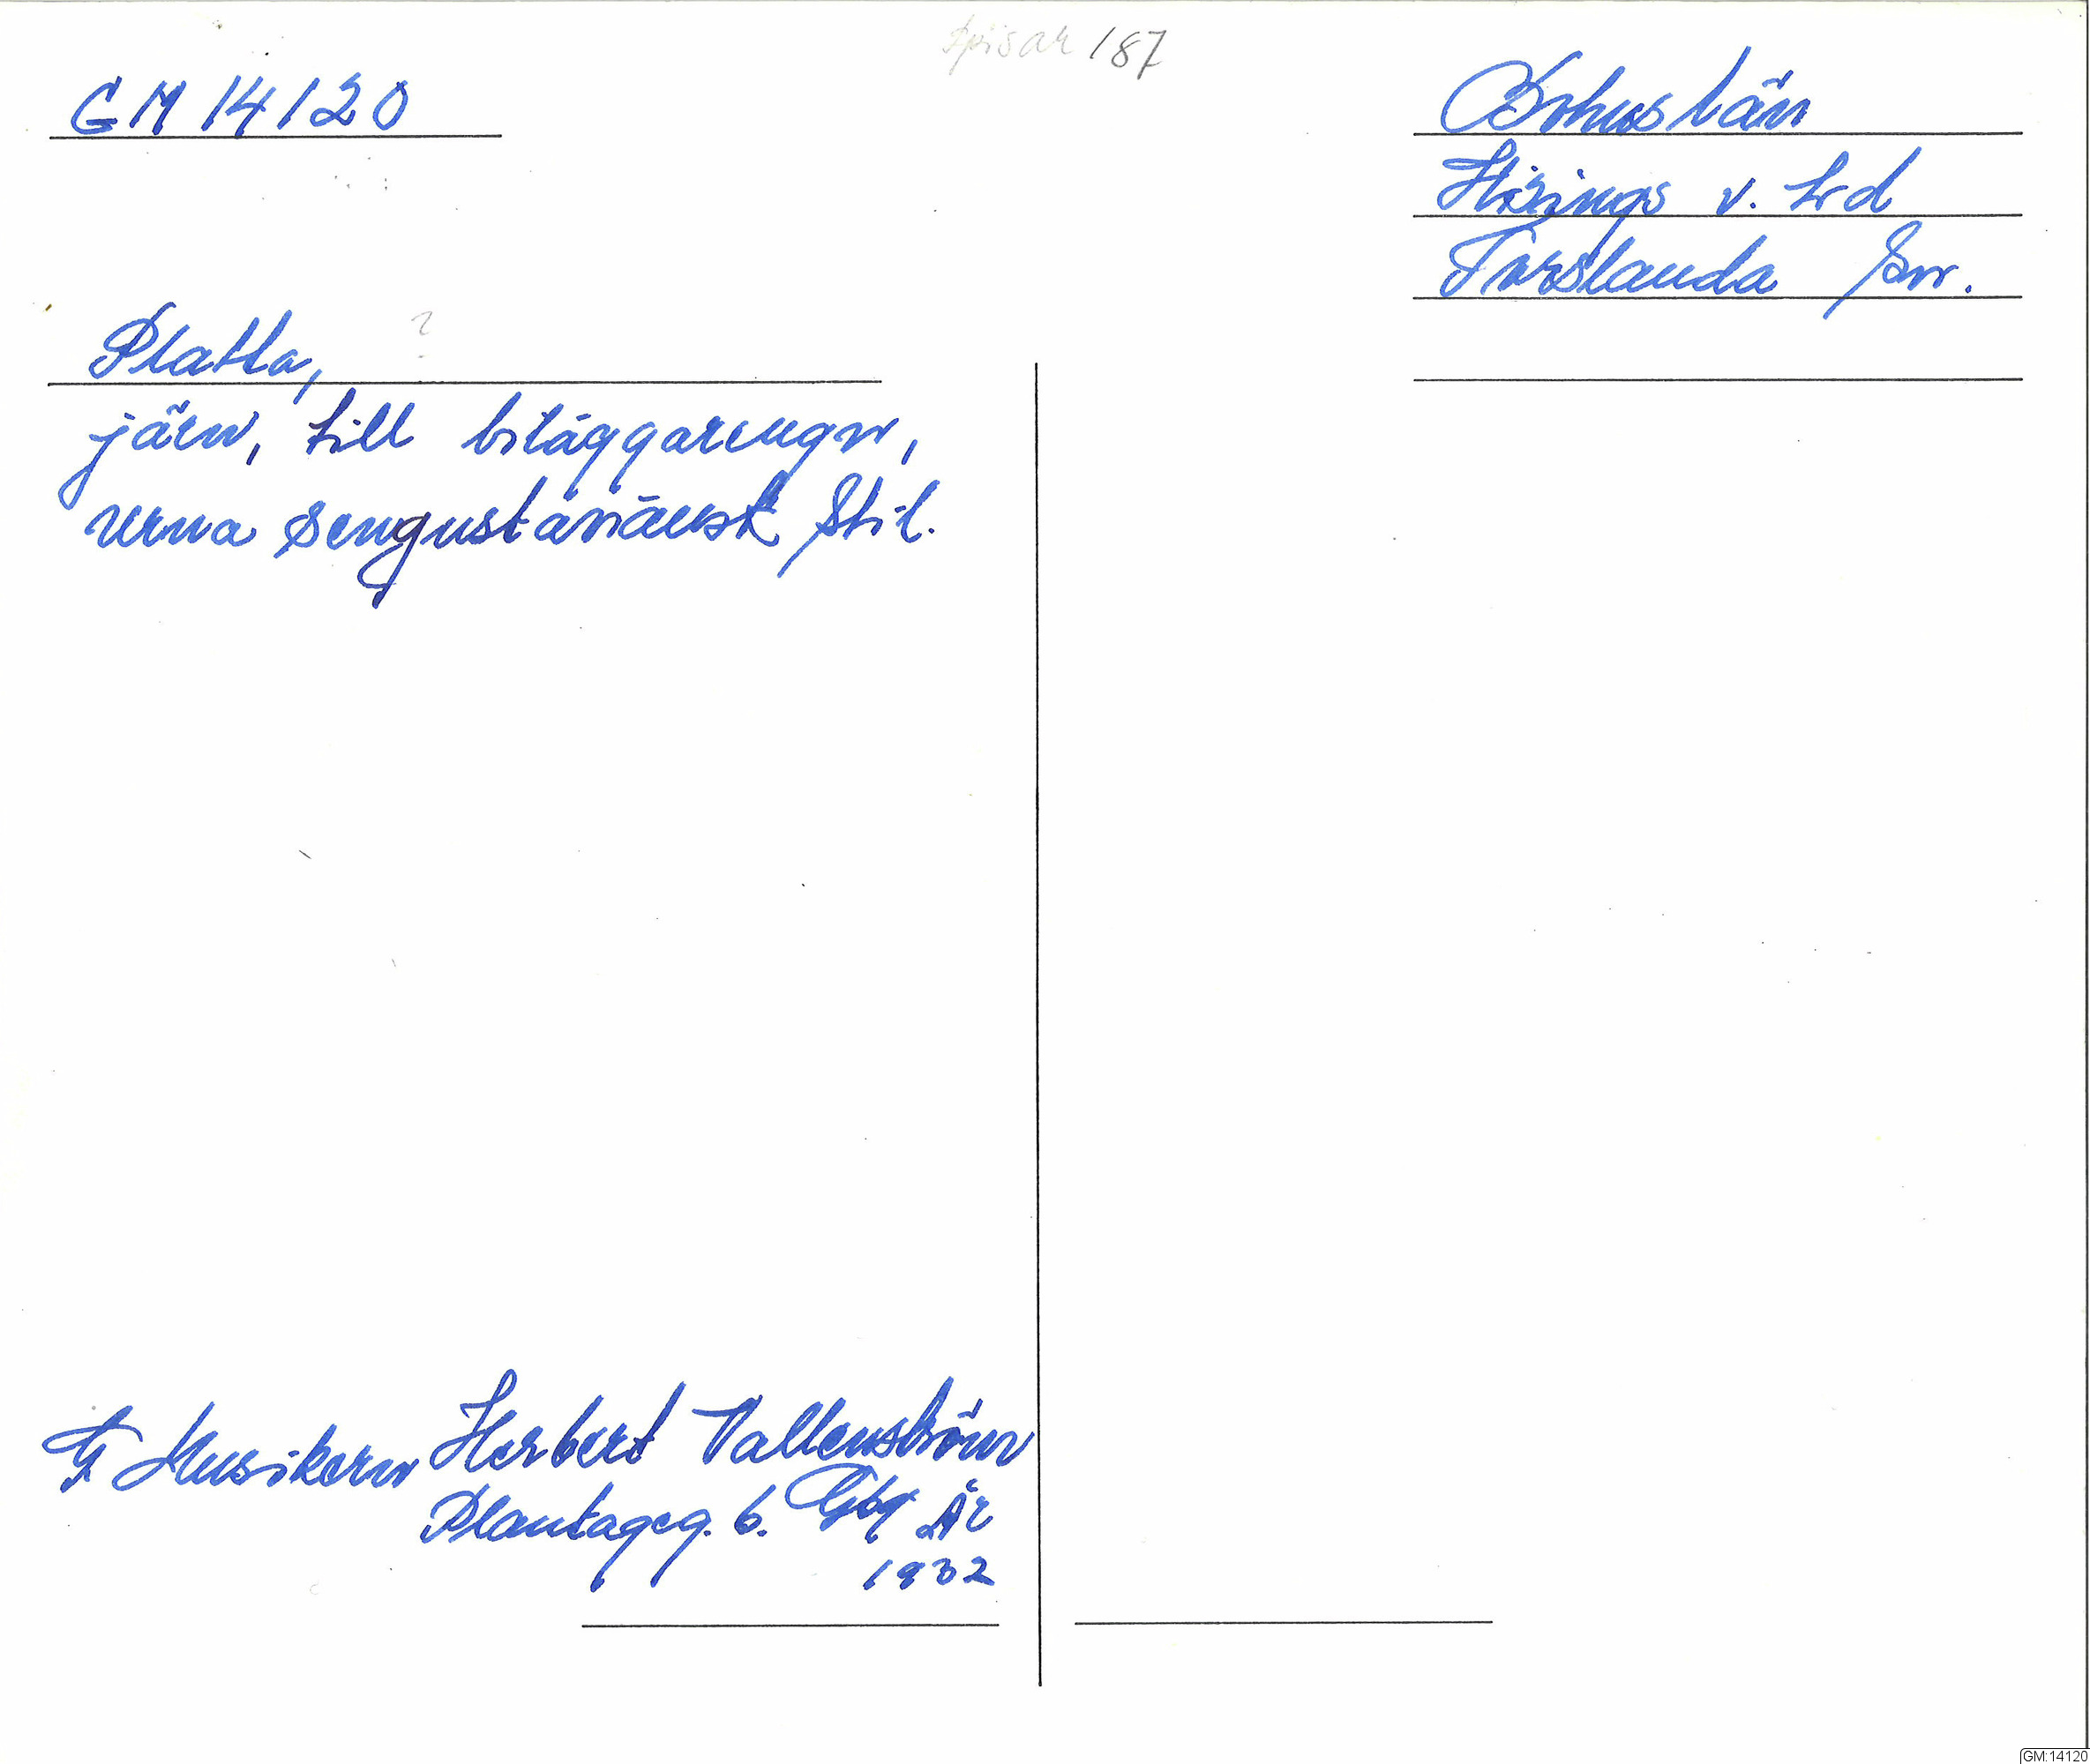 Spisar 187
GM 14120
Bohuslän
Hisings v. hd
Torslanda sn.
Platta, ?
järn, till biläggareugn,
urna sengustaviansk stil.
Fr Musikern Herbert Vallenström
Plantageg. 6. Gbg År
1932
GM:14120